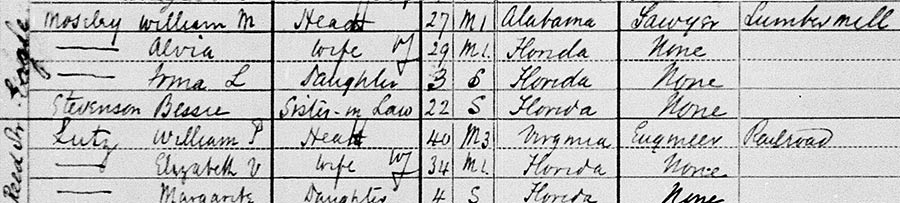 Moseley William M Head 27 M1 Alabama Sawyer Lumber mill
—— Alvia Wife 29 M1 Florida None
—— Irma L Daughter 3 S Florida None
Stevenson Bessie Sister-in Law 22 S Florida None
Lutz William P Head 40 M3 Virginia Engineer Railroad
—— Elizabeth V Wife 34 M1 Florida None
—— Margarite Daughter 4 S Florida None